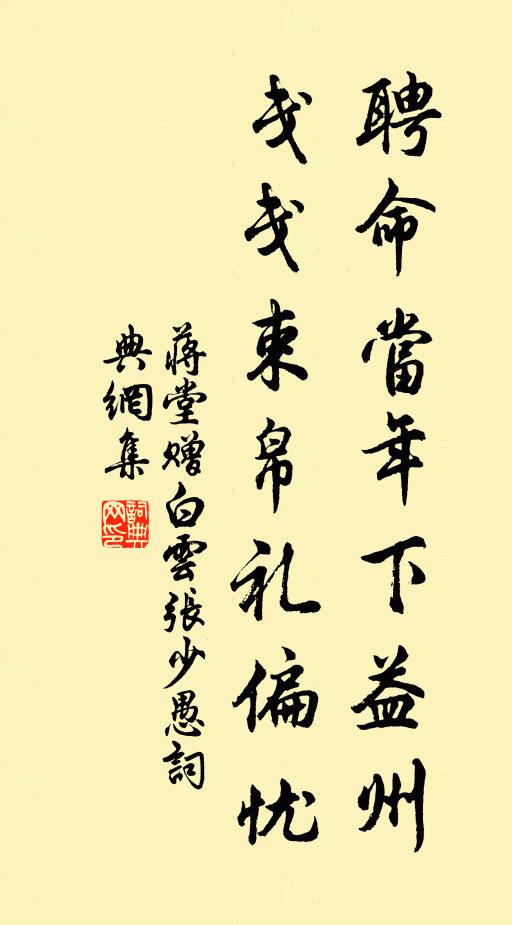 聘命當年下益州
戋戋束帛礼偏忧
蔣堂贈白雲張少愚詞
典網集
詞典
网印